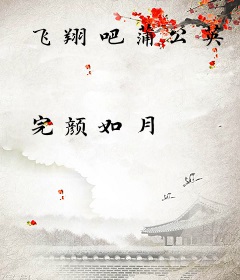 飞翔吧蒲公英
完颜如月